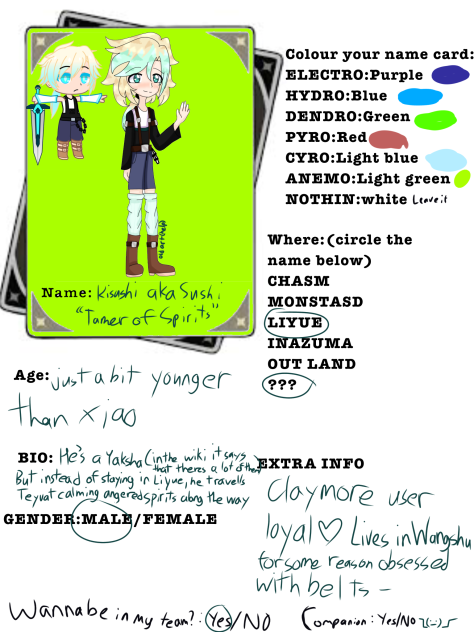 Colour your name card:
ELECTRO:Purple
HYDRO:Blue
DENDRO:Green
PYRO:Red
CYRO:Light blue
ANEMO:Light green
NOTHIN:white Leave it
Where:(circle the
name below)
CHASM
MONSTASD
LIYUE
INAZUMA
OUT LAND
???
Name: Kisushi aka Sushi
"Tamer of Spirits"
Age: just a bit younger
than xiao
BIO: He's a Yaksha (in the wiki it says
that theres a lot of them)
But instead of staying in Liyue, he travells
Teyvat calming angered spirits along the way
GENDER:MALE/FEMALE
EXTRA INFO
Claymore user
loyal♡ Lives in Wangshu
for some reason obsessed
with belts -
Wanna be in my team?: Yes/NO
Companion: Yes/No